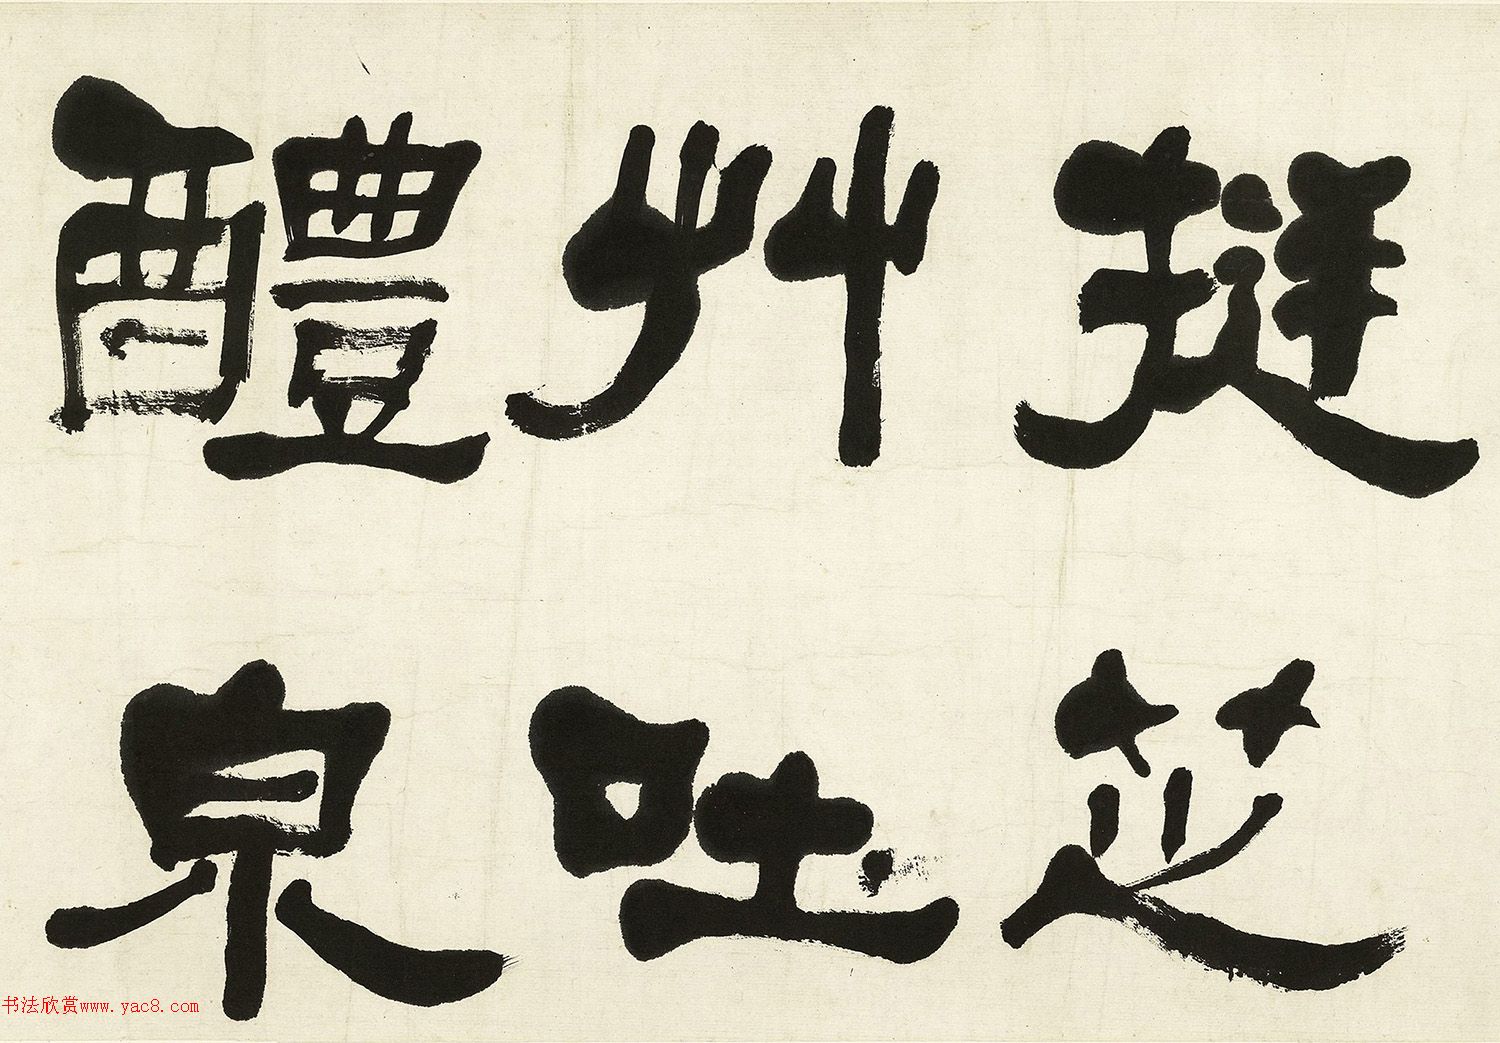 挺芝
艸吐
醴泉
书法欣赏www.yac8.com